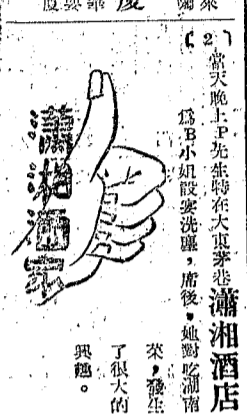 (2)
當天晚上P先生特在大東茅巷瀟湘酒店
為B小姐設宴洗塵，席後，她對吃湖南
菜，發生
了很大的
興趣。
瀟湘酒家